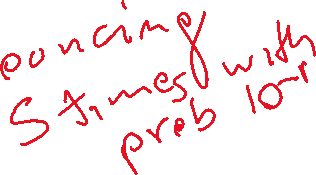 pouncing
5 times with
prob 10^-1